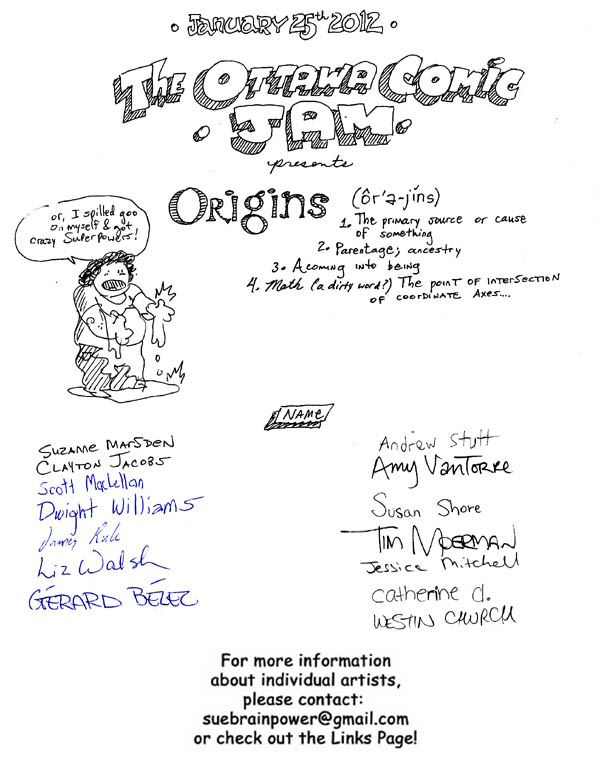 • January 25th 2012 •
The Ottawa Comic
• Jam •
presents
Origins (ôr'ə-jĭns)
1. The primary source or cause
of something
2. Parentage; ancestry
3. A coming into being
4. Math (a dirty word?) The point of intersection
of coordinate Axes....
or, I spilled goo
on myself & got
crazy Superpowers!
NAME
Suzanne Marsden
Clayton Jacobs
Scott MacLellan
Dwight Williams
Liz Walsh
Gérard Bélec
Andrew Stutt
Amy VanTorre
Susan Shore
Tim Moerman
Jessica Mitchell
catherine d.
Westin Church
For more information
about individual artists,
please contact:
suebrainpower@gmail.com
or check out the Links Page!